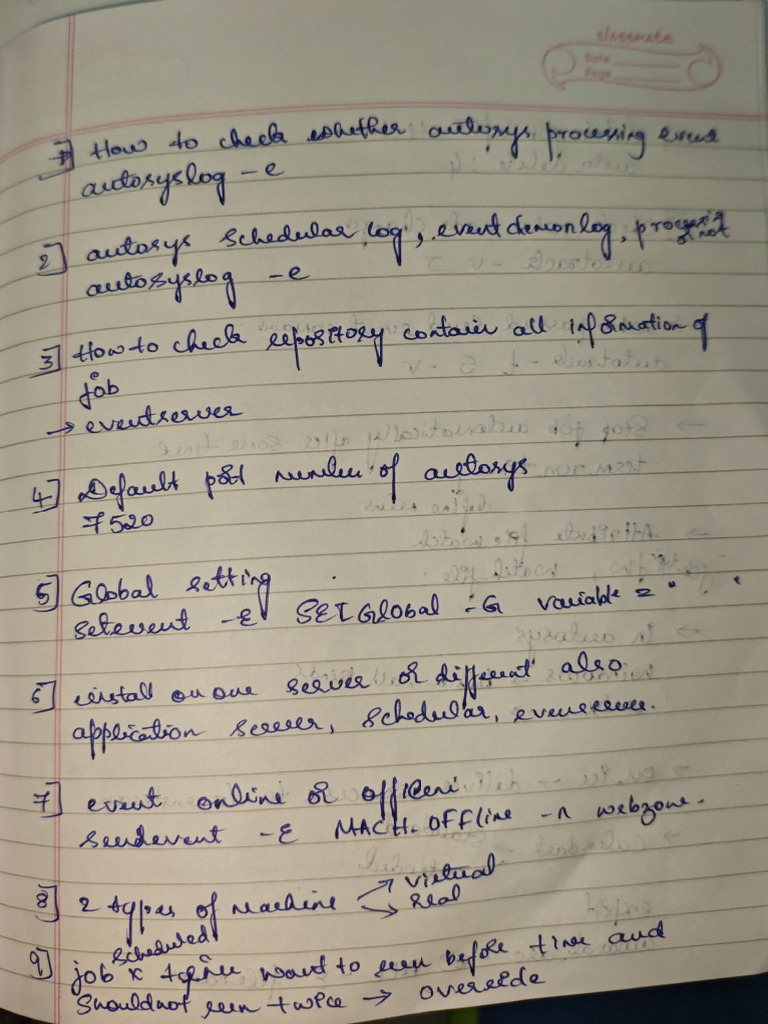 classmate
Date
Page
1] How to check whether autosys processing event
autosyslog - e
2] autosys schedular log, event demonlog, processing or not
autosyslog - e
3] How to check repository contain all information of
job
→ eventserver
4] Default port number of autosys
7520
5] Global setting
setevent -E SETGlobal -G variable = " "
6] install on one server or different also
application server, schedular,
7] event online or
sendevent -E MACH-OFFline -n webzone.
8] 2 types of machine virtual
real
scheduled
9] job x want to run before time and
Shouldnot run twice → overeide